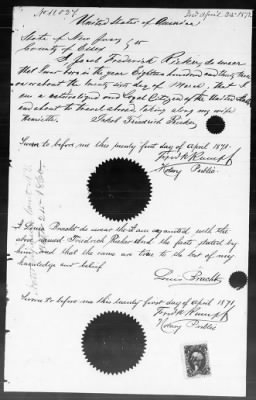 No 11034
United States of America
State of New Jersey
County of Essex } SS
I Jacob Friedrich Rieker, do swear
that I was born in the year Eighteen hundred and thirty three
on or about the twenty sixt day of March, that I
am a naturalized and Loyal Citizen of the United States
and about to travel abroad, taking along my wife
Henriette. Jakob Friedrich Rieker
Sworn to before me this twenty first day of April 1871.
Fred K. Rumpf
Notary Public.
I Louis Bracht do swear that I am acquainted with the
above named Friedrich Rieker and the facts stated by
him and that the same are true to the best of my
knowledge and belief
Louis Bracht
Sworn to before me this twenty first day of April 1871,
Fred K. Rumpf
Notary Public